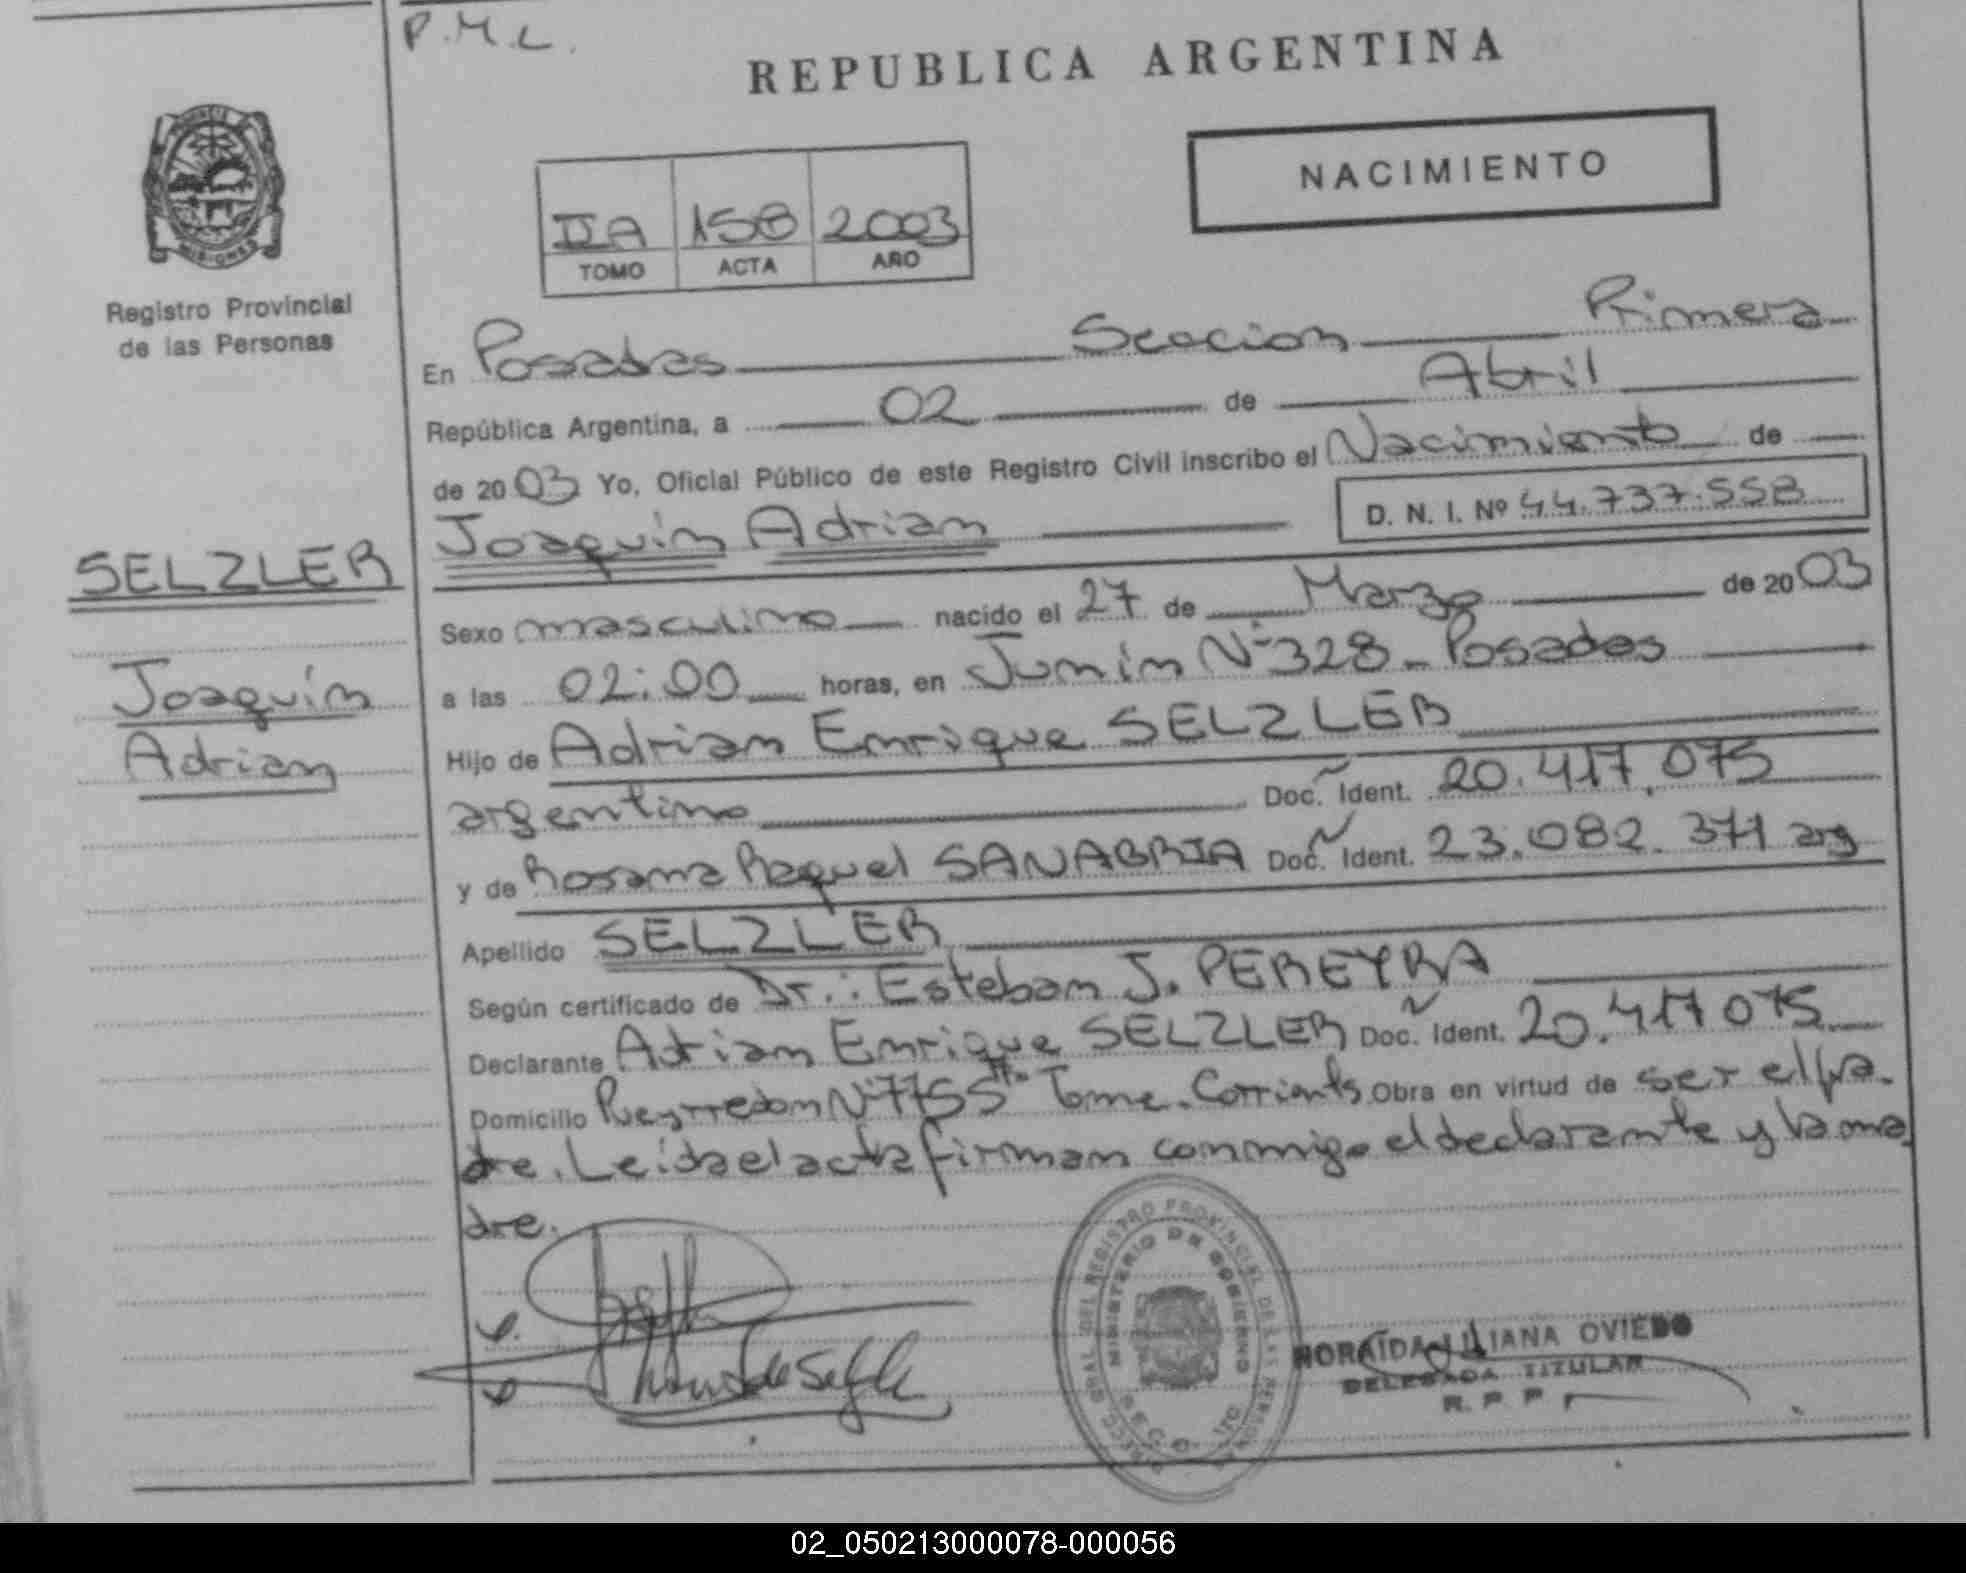 P.M.L.
REPUBLICA ARGENTINA
NACIMIENTO
IIA 158 2003
TOMO ACTA AÑO
PROVINCIA DE MISIONES
Registro Provincial
de las Personas
En Posadas Seccion Primera
República Argentina, a 02 de Abril
de 2003 Yo, Oficial Público de este Registro Civil inscribo el Nacimiento de
Joaquín Adrian D. N. I. Nº 44.737.558
SELZLER
Joaquín
Adrian
Sexo masculino nacido el 27 de Marzo de 2003
a las 02:00 horas, en Junín Nº 328 - Posadas
Hijo de Adrian Enrique SELZLER
argentino Doc. Ident. 20.417.075
y de Rosana Raquel SANABRIA Doc. Ident. 23.082.371 arg
Apellido SELZLER
Según certificado de Dr.: Esteban J. PEREYRA
Declarante Adrian Enrique SELZLER Doc. Ident. 20.417075
Domicilio Pueyrredon Nº 775 Sto Tome. Corrientes Obra en virtud de ser el pa-
dre. Leida el acta firman conmigo el declarante y la ma
dre.
DIRECC. GRAL DEL REGISTRO PROVINCIAL DE LAS PERSONAS
MINISTERIO DE GOBIERNO
HORAIDA LILIANA OVIEDO
DELEGADA TITULAR
R. P. P.
02_050213000078-000056